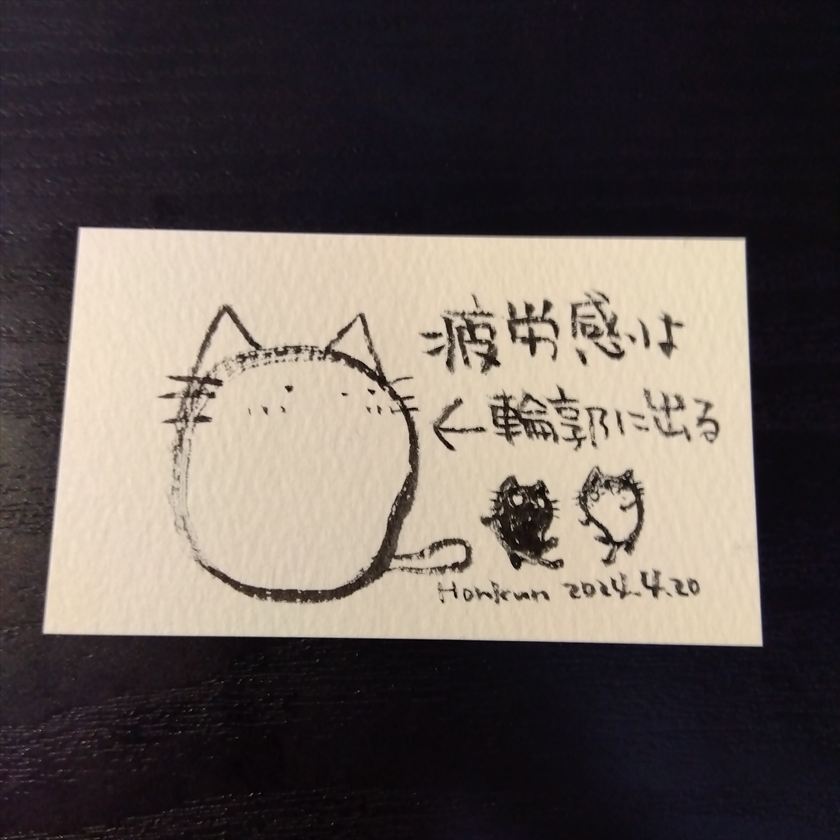 疲労感は
←輪郭に出る
Honkun 2024.4.20